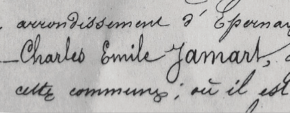 arrondissement d'Epernay
Charles Emile Jamart,
cette commune; où il est